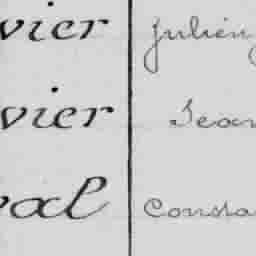 vier Julien
vier Jean
val Consta